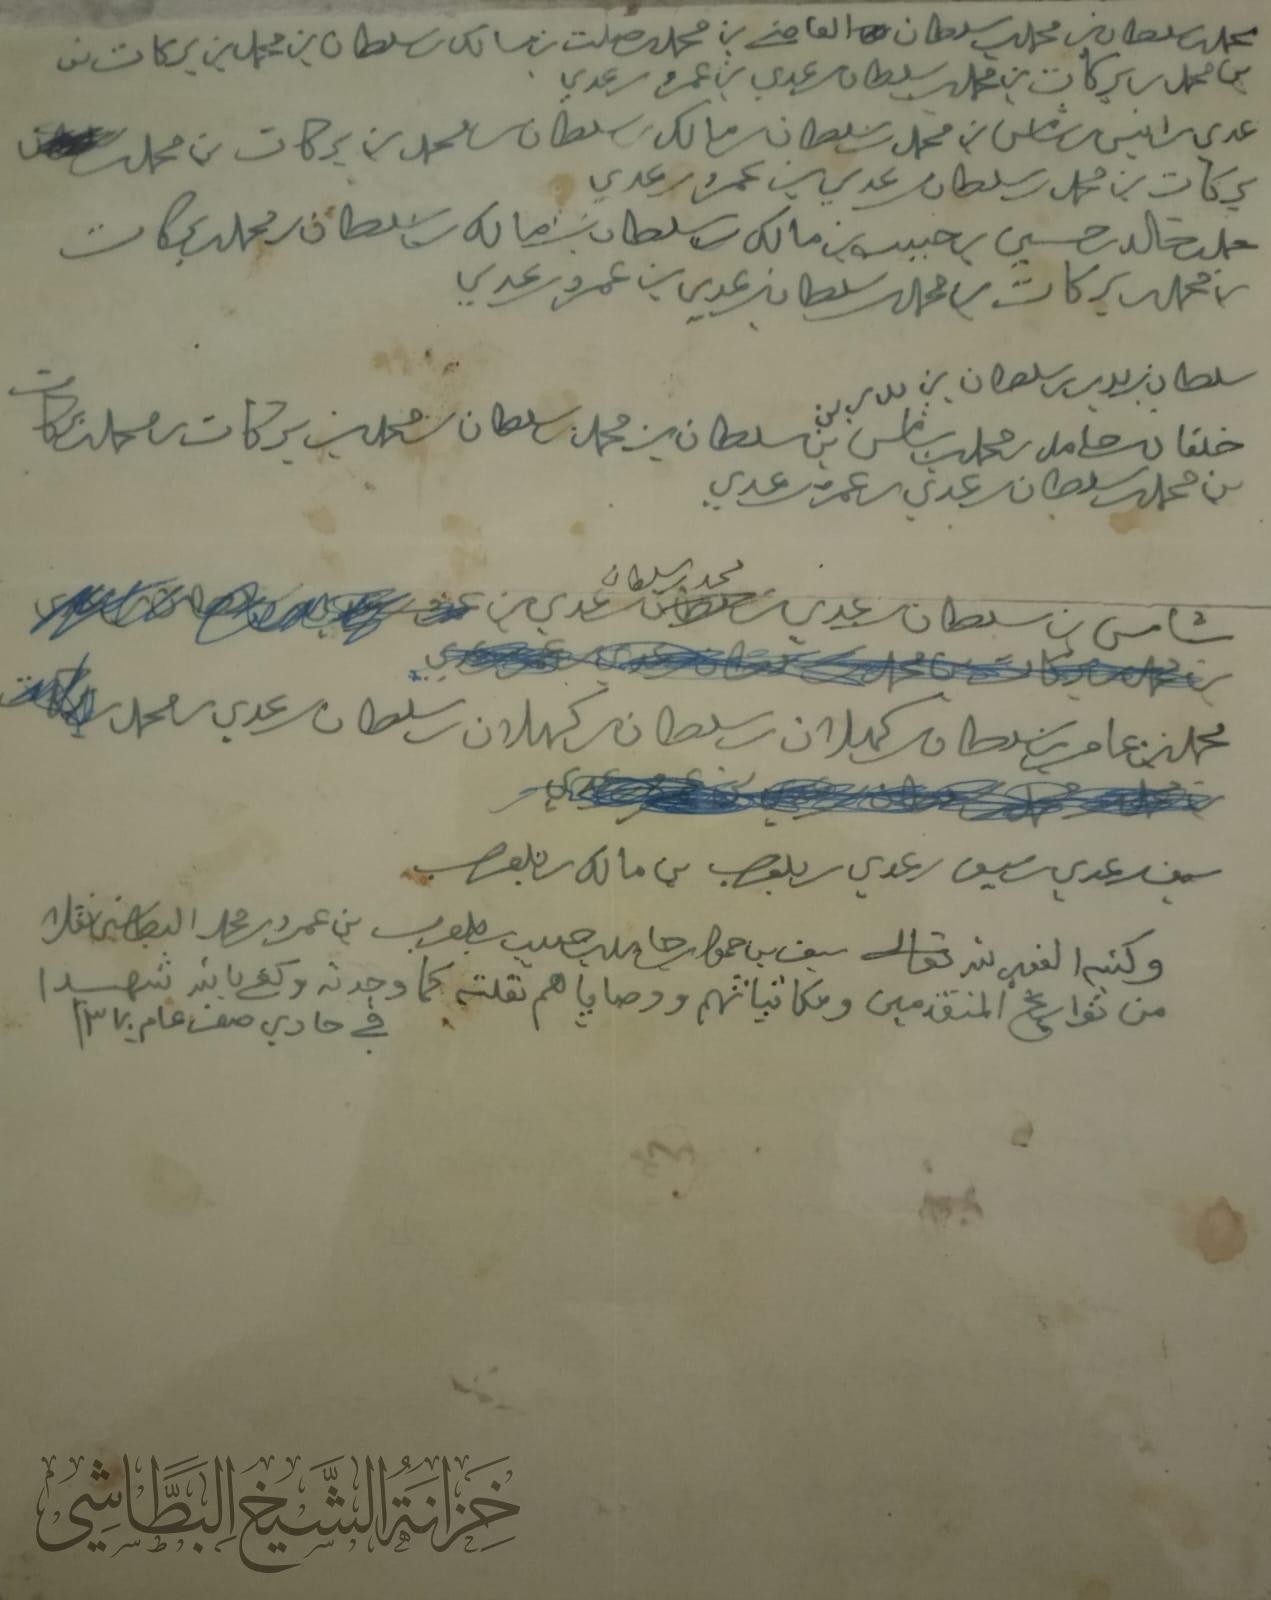 محمد بن سلطان بن محمد بن سلطان القاضي بن محمد بن صلت بن مالك بن سلطان بن محمد بن بركات بن
بن محمد بن بركات بن محمد بن سلطان بن عدي بن عمرو بن عدي
عدي بن شامس بن محمد بن سلطان بن مالك بن سلطان بن محمد بن بركات بن محمد بن
بركات بن محمد بن سلطان بن عدي بن عمرو بن عدي
حمد بن خالد بن حبيب بن مالك بن سلطان بن مالك بن سلطان بن محمد بن بركات
بن محمد بن بركات بن محمد بن سلطان بن عدي بن عمرو بن عدي
سلطان بن سلطان بن عدي بن
خلفان بن حامد بن محمد بن شامس بن سلطان بن محمد بن سلطان بن محمد بن بركات بن محمد بن بركات
بن محمد بن سلطان بن عدي بن عمرو بن عدي
محمد بن سلطان
شامس بن سلطان بن عدي بن عدي بن
محمد بن عامر بن سلطان بن كهلان بن سلطان بن كهلان بن سلطان بن عدي بن محمد بن
سيف بن عدي بن سيف بن عدي بن بلعرب بن مالك بن بلعرب
وكتبه الفقير لله تعالى سيف بن حمود بن حامد بن حبيب بن بلعرب بن عمرو بن محمد البطاشي نقلا
من تواريخ المتقدمين ومكاتباتهم ووصاياهم نقلته كما وجدته وكفى بالله شهيدا
في حادي صفر عام
خزانة الشيخ البطاشي